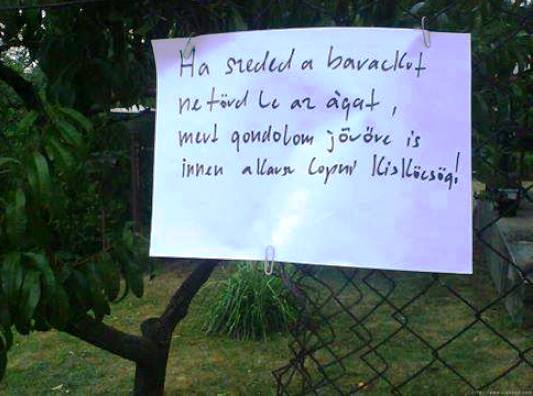 Ha szeded a barackot
ne törd le az ágat,
mert gondolom jövőre is
innen akarsz lopni kisköcsög!